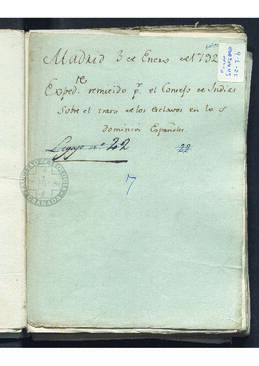 Madrid 3 de Enero de 1792
Expedte remitido pr el Consejo de Indias
Sobre el trato de los Esclavos en los
dominios Españoles
Legajo nº 22 22
7